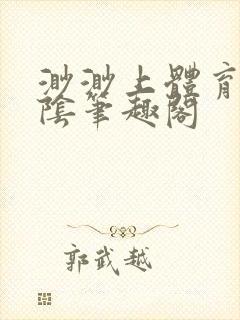 渺渺上體育
陰筆趣閣
郭武越